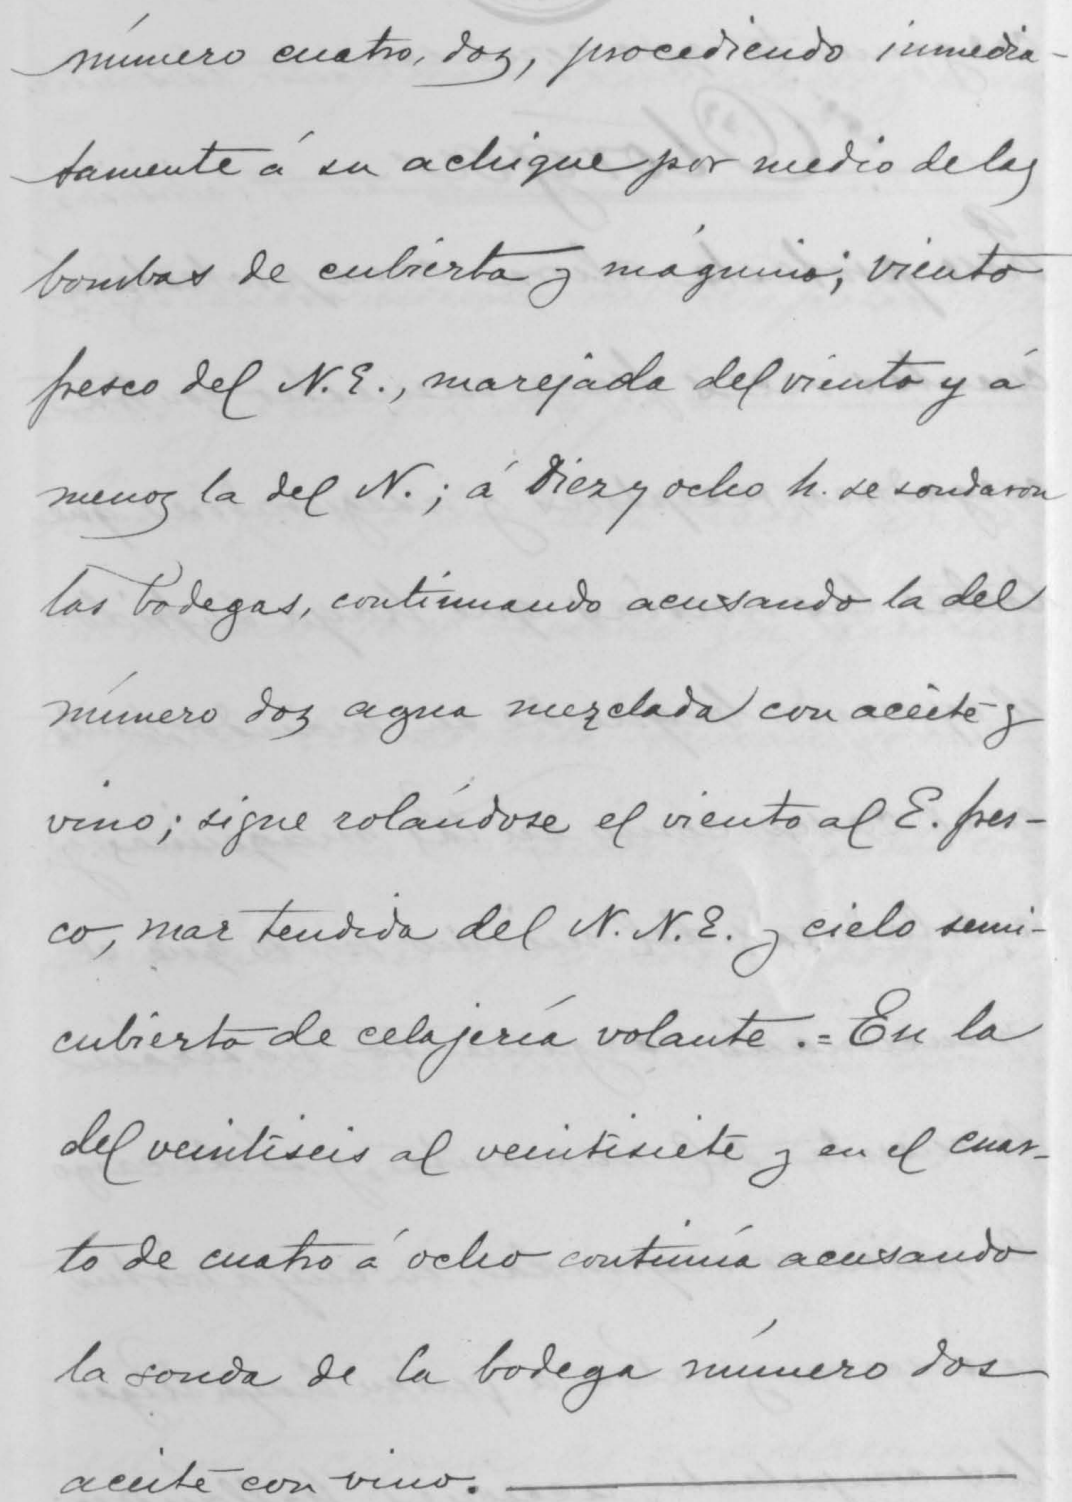 número cuatro, dos, procediendo inmedia-
tamente á su achique por medio de las
bombas de cubierta y máquina; viento
fresco del N.E., marejada del viento y á
menos la del N.; á diez y ocho h. se sondaron
las bodegas, continuando acusando la del
número dos agua mezclada con aceite y
vino; sigue rolándose el viento al E. fres-
co, mar tendida del N.N.E. y cielo semi-
cubierto de celajería volante.=En la
del veintiseis al veintisiete y en el cuar-
to de cuatro á ocho continúa acusando
la sonda de la bodega número dos
aceite con vino.